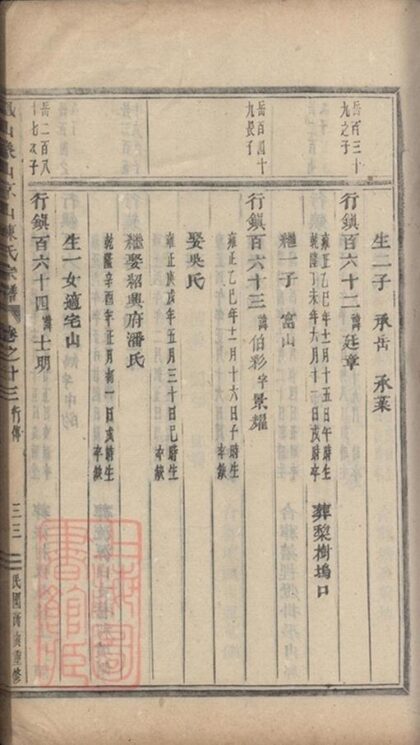 生二子 承岳 承業
岳百三十九之子
行鎮百六十二諱廷章
雍正乙巳年十一月十五日午時生
乾隆丁未年六月十二日戌時卒
葬梨樹塢口
繼一子 富山
岳百四十九長子
行鎮百六十三諱伯彩字景耀
雍正乙巳年二月十六日子時生
卒缺
娶吳氏
雍正癸卯年五月三十日巳時生
卒缺
繼娶紹興府潘氏
乾隆辛酉年正月初一日戌時生
卒缺
生一女適宅山
岳二百八十七次子
行鎮百六十四諱士明
山陳氏宗譜 卷之十三 行傳 三三 民國
重修